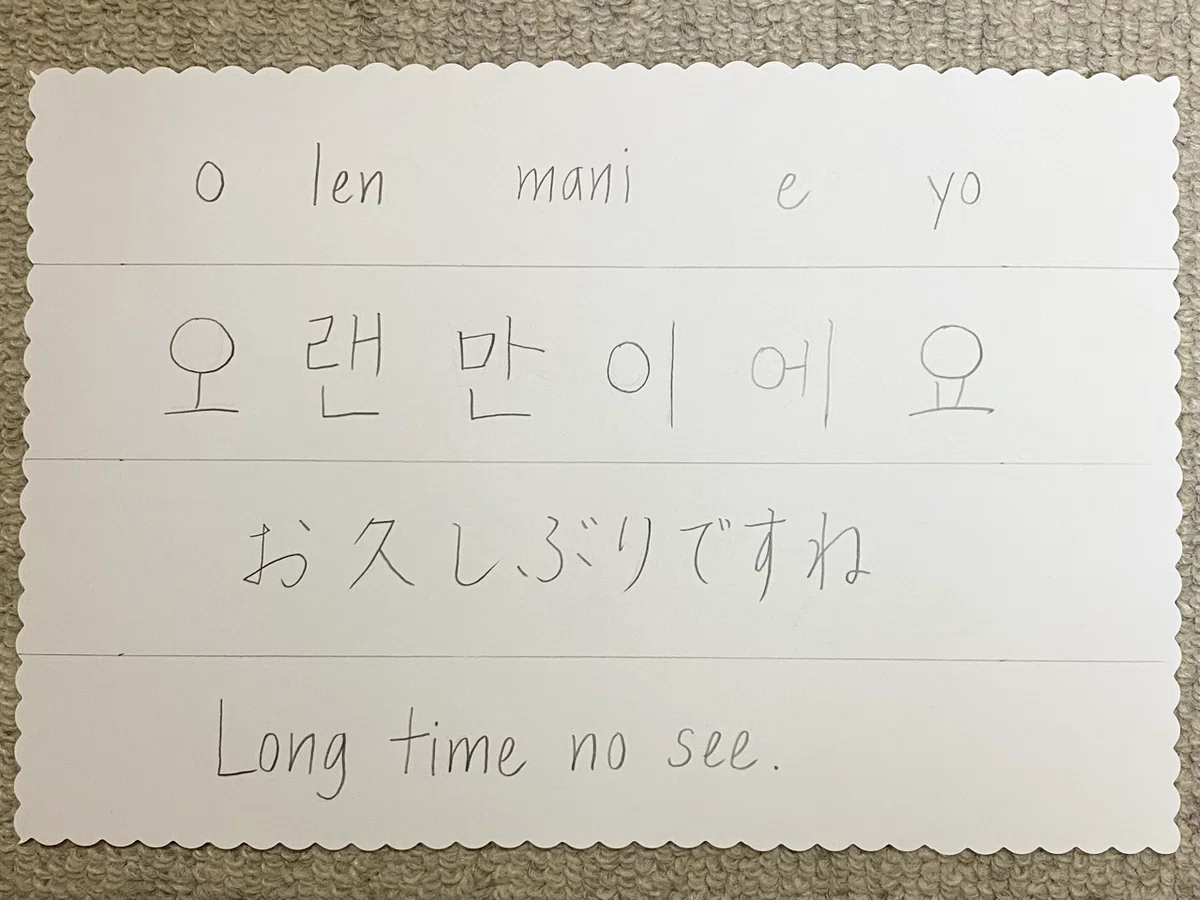 o len mani e yo
오랜만이에요
お久しぶりですね
Long time no see.